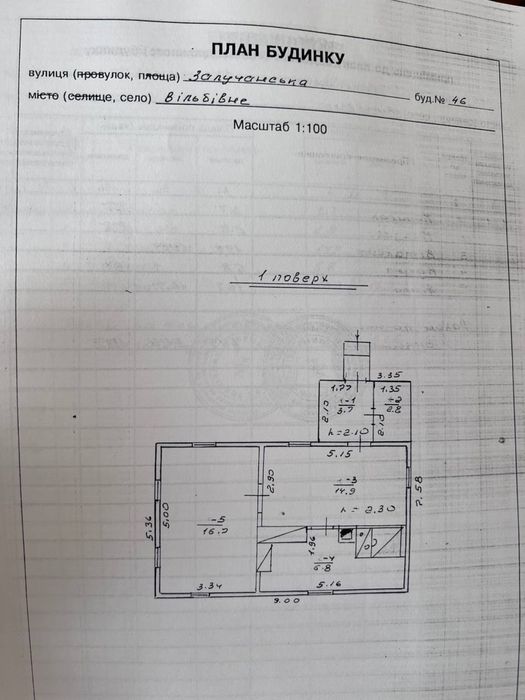 ПЛАН БУДИНКУ
вулиця (провулок, площа) Залучанська буд.№ 46
місто (селище, село) Вільбівне
Масштаб 1:100
1 поверх
3.35
1.77 1.35
2.10 1-1 3.7 1-2 2.8 2.10
h=2.10
5.15
2.90 1-3 14.9
h=2.30
7.58
5.36 5.00 1-5 16.7
1.96 1-4 6.8
3.34 5.16
9.00